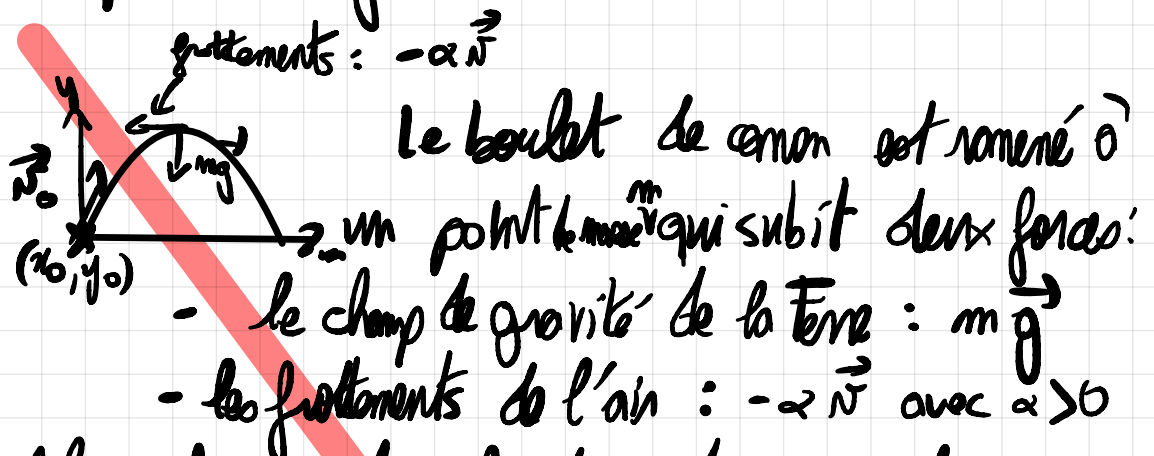 frottements : -α v⃗
y
Le boulet de canon est ramené à
v⃗₀
mg
un point de masse m qui subit deux forces :
(x₀, y₀)
- le champ de gravité de la Terre : m g⃗
- les frottements de l'air : -α v⃗ avec α > 0